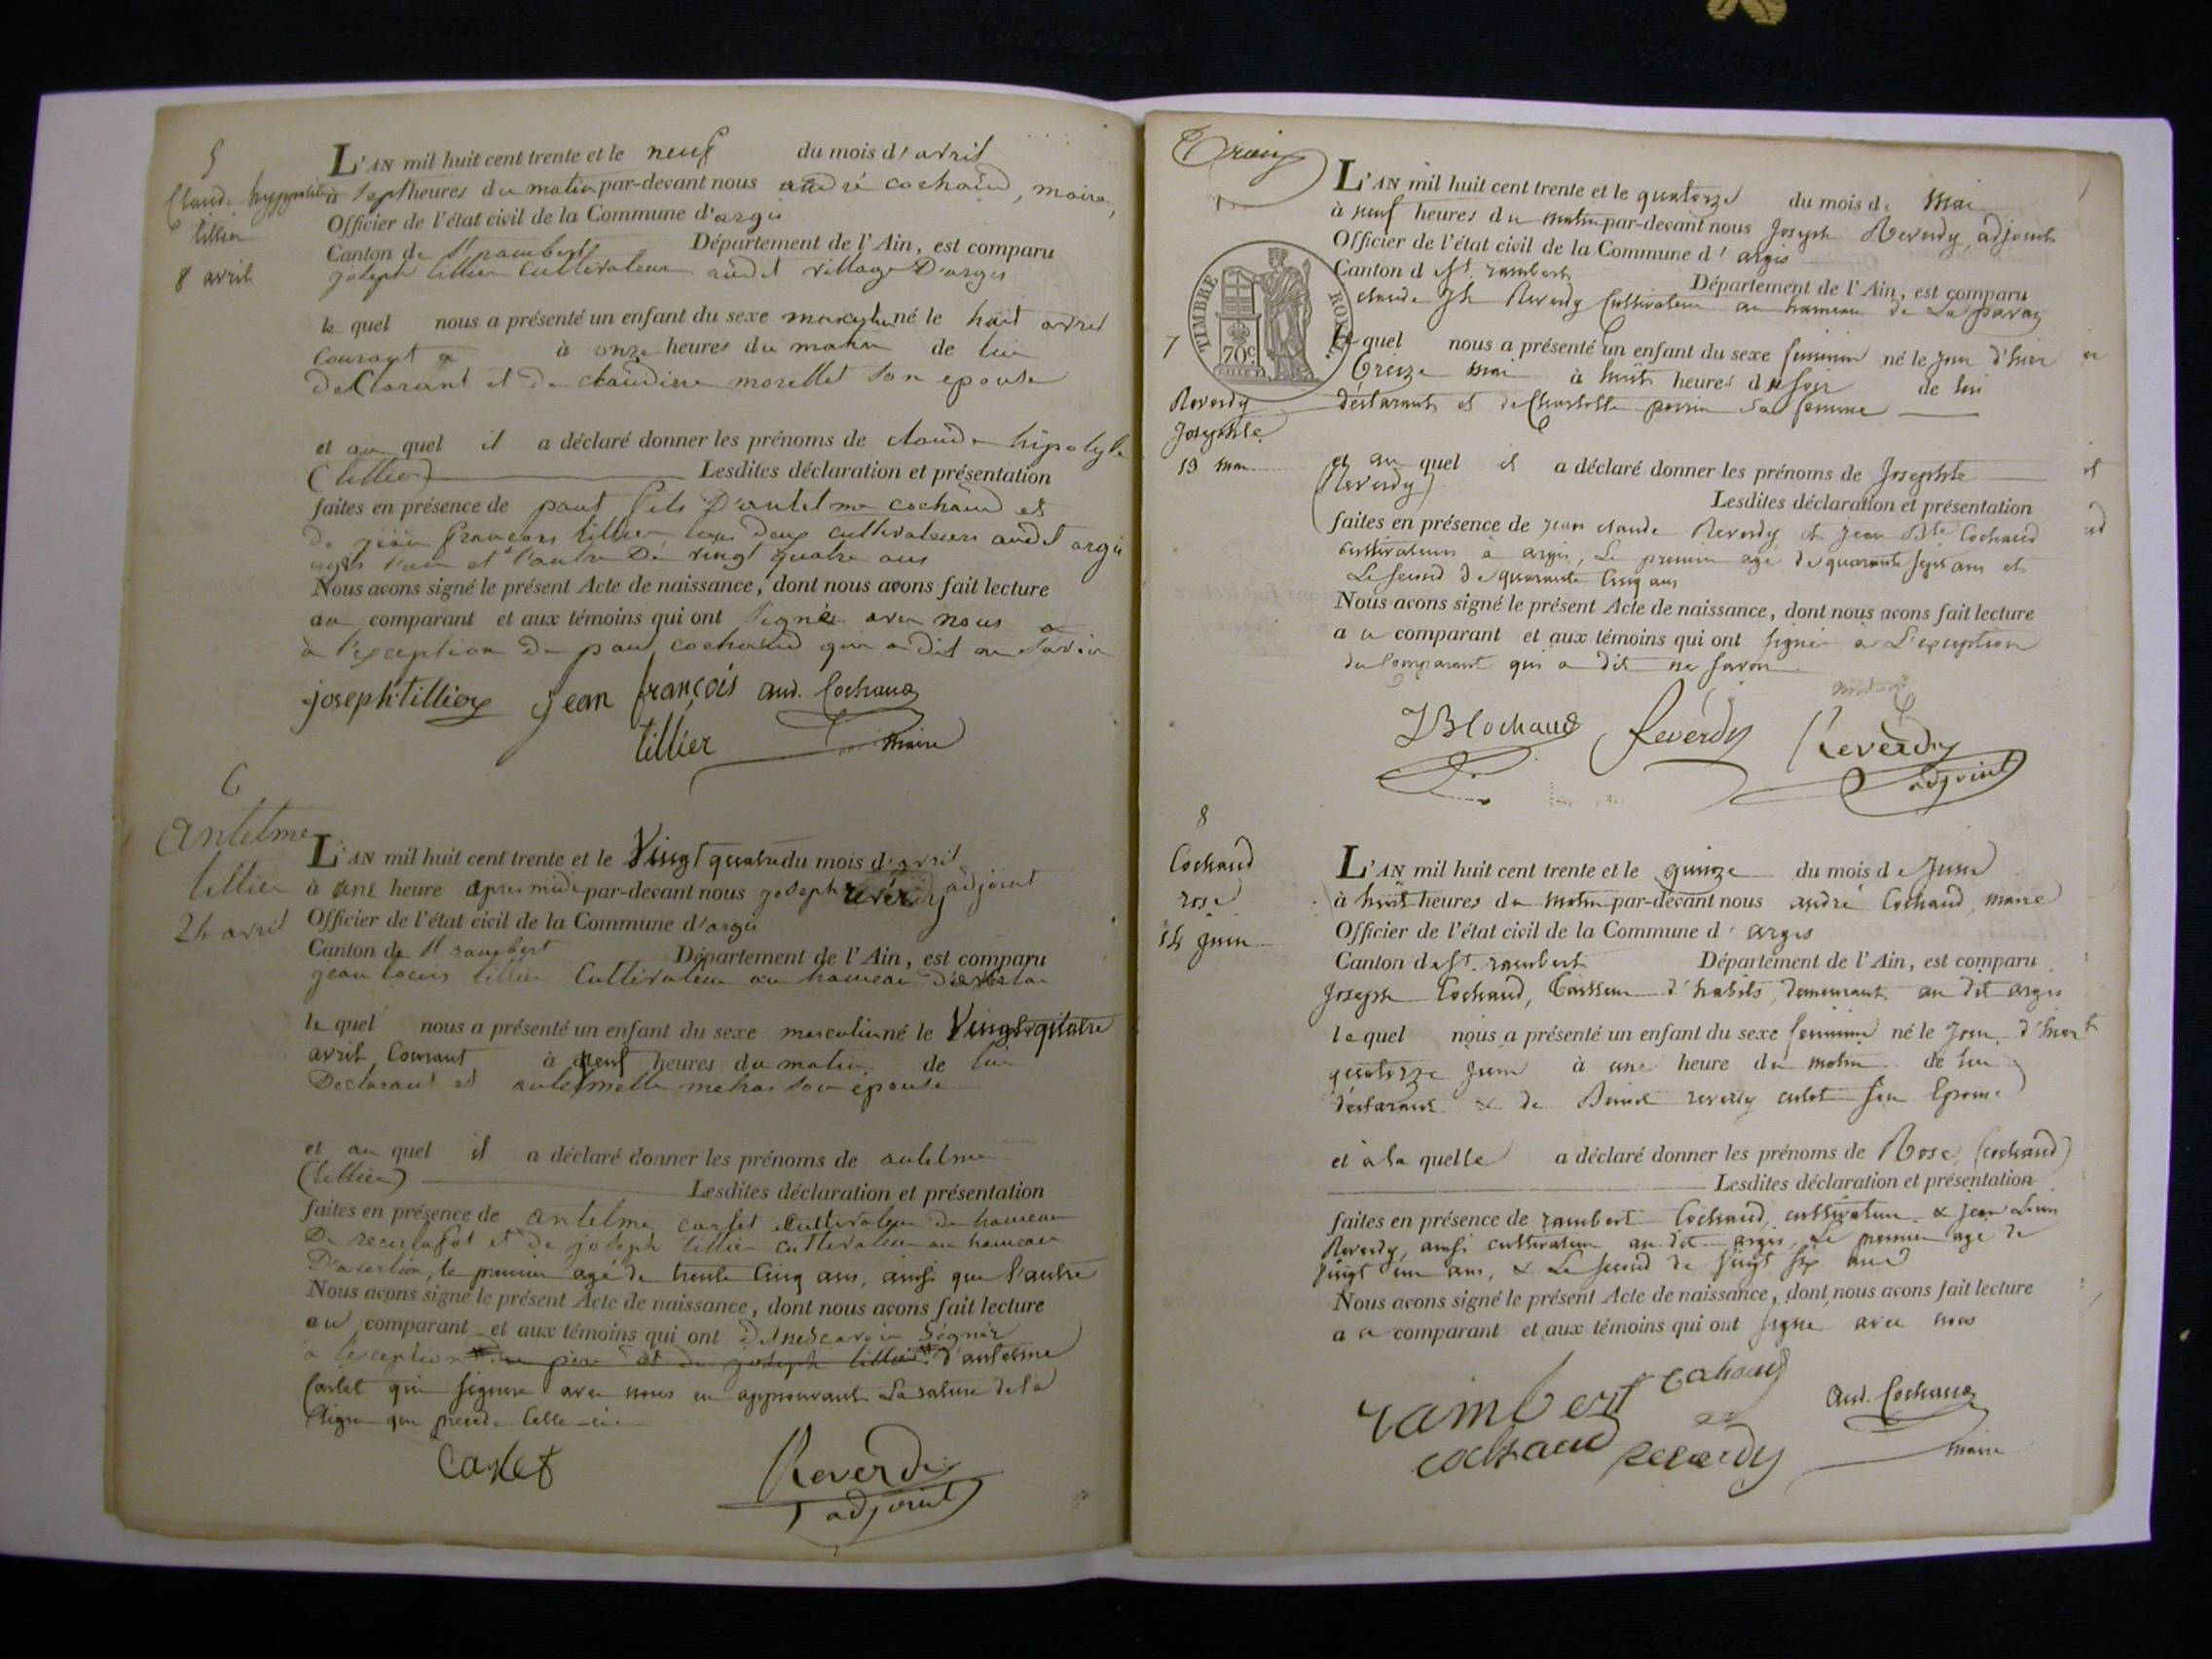 5
Claude hyppolite
tillier
8 avril
L'AN mil huit cent trente et le neuf du mois d'avril
à sept heures du matin par-devant nous andré cochaud, maire,
Officier de l'état civil de la Commune d'argis
Canton de St rambert Département de l'Ain, est comparu
joseph tillier cultivateur audit village D'argis
le quel nous a présenté un enfant du sexe masculin né le huit avril
courant à onze heures du matin de lui
declarant et de claudine morellet son epouse
et au quel il a déclaré donner les prénoms de claude hipolyte
(tillier) Lesdites déclaration et présentation
faites en présence de paul fils D'antelme cochaud et
de jean françois tillier tous deux cultivateurs audit argis
agés l'un et l'autre De vingt quatre ans
Nous avons signé le présent Acte de naissance, dont nous avons fait lecture
au comparant et aux témoins qui ont signés avec nous
à l'exception de paul cochaud qui a dit ne savoir
joseph tillier jean françois and. Cochaud
tillier maire
6
Antelme
tillier
24 avril
L'AN mil huit cent trente et le Vingt quatre du mois d'avril
à une heure apres midi par-devant nous joseph reverdy adjoint
Officier de l'état civil de la Commune d'argis
Canton de St rambert Département de l'Ain, est comparu
jean louis tillier Cultivateur au hameau
le quel nous a présenté un enfant du sexe masculin né le Vingt quatre
avril Courant à neuf heures du matin de lui
Declarant et antelmette son épouse
et au quel il a déclaré donner les prénoms de antelme
(tillier) Lesdites déclaration et présentation
faites en présence de antelme carlet Cultivateur du hameau
De et de joseph tillier cultivateur au hameau
le premier agé de trente Cinq ans, ainsi que l'autre
Nous avons signé le présent Acte de naissance, dont nous avons fait lecture
au comparant et aux témoins qui ont signer
à l'exception du père et de joseph tillier d'antelme
Carlet qui signera avec nous en approuvant la rature de la
ligne qui precede celle-ci
Carlet Reverdi
adjoint
Trois
TIMBRE ROYAL
70c
7
Reverdy
Josephte
13 mai
L'AN mil huit cent trente et le quatorze du mois de Mai
à neuf heures du matin par-devant nous Joseph Reverdy, adjoint
Officier de l'état civil de la Commune d'argis
Canton de St. rambert Département de l'Ain, est comparu
claude Jh Reverdy Cultivateur au hameau de
le quel nous a présenté un enfant du sexe feminin né le jour d'hier
treize mai à huit heures du soir de lui
déclarant et de Charlotte perrin sa femme
et au quel il a déclaré donner les prénoms de Josephte
(Reverdy) Lesdites déclaration et présentation
faites en présence de jean claude Reverdy et jean Bte Cochaud
cultivateurs à argis, Le premier agé de quarante sept ans et
Le second de quarante cinq ans
Nous avons signé le présent Acte de naissance, dont nous avons fait lecture
a ce comparant et aux témoins qui ont signé à L'exception
du Comparant qui a dit ne savoir
JB Cochaud Reverdy Reverdy
adjoint
8
Cochaud
rose
14 juin
L'AN mil huit cent trente et le quinze du mois de Juin
à huit heures du matin par-devant nous andré Cochaud, maire
Officier de l'état civil de la Commune d'argis
Canton de St. rambert Département de l'Ain, est comparu
Joseph Cochaud, d'habits, demeurant au dit argis
le quel nous a présenté un enfant du sexe feminin né le Jour d'hier
quatorze juin à une heure du matin de lui
déclarant & de reverdy son Epouse
et à la quelle a déclaré donner les prénoms de Rose (cochaud)
Lesdites déclaration et présentation
faites en présence de rambert Cochaud, cultivateur & jean Louis
Reverdy, aussi cultivateur au dit argis, Le premier agé de
vingt un ans, & Le second de vingt six ans
Nous avons signé le présent Acte de naissance, dont nous avons fait lecture
a ce comparant et aux témoins qui ont signé avec nous
rambert And. Cochaud
cochaud reverdy maire